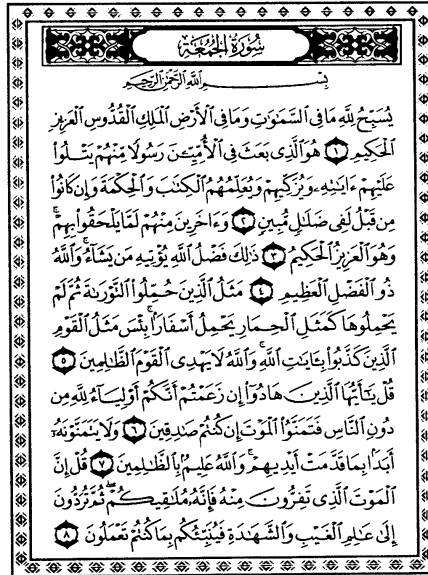 سُورَةُ الجُمُعَةِ
بِسْمِ ٱللَّهِ ٱلرَّحْمَٰنِ ٱلرَّحِيمِ
يُسَبِّحُ لِلَّهِ مَا فِى ٱلسَّمَٰوَٰتِ وَمَا فِى ٱلْأَرْضِ ٱلْمَلِكِ ٱلْقُدُّوسِ ٱلْعَزِيزِ
ٱلْحَكِيمِ ١ هُوَ ٱلَّذِى بَعَثَ فِى ٱلْأُمِّيِّۦنَ رَسُولًا مِّنْهُمْ يَتْلُوا۟
عَلَيْهِمْ ءَايَٰتِهِۦ وَيُزَكِّيهِمْ وَيُعَلِّمُهُمُ ٱلْكِتَٰبَ وَٱلْحِكْمَةَ وَإِن كَانُوا۟
مِن قَبْلُ لَفِى ضَلَٰلٍ مُّبِينٍ ٢ وَءَاخَرِينَ مِنْهُمْ لَمَّا يَلْحَقُوا۟ بِهِمْ ۚ
وَهُوَ ٱلْعَزِيزُ ٱلْحَكِيمُ ٣ ذَٰلِكَ فَضْلُ ٱللَّهِ يُؤْتِيهِ مَن يَشَآءُ ۚ وَٱللَّهُ
ذُو ٱلْفَضْلِ ٱلْعَظِيمِ ٤ مَثَلُ ٱلَّذِينَ حُمِّلُوا۟ ٱلتَّوْرَىٰةَ ثُمَّ لَمْ
يَحْمِلُوهَا كَمَثَلِ ٱلْحِمَارِ يَحْمِلُ أَسْفَارًۢا ۚ بِئْسَ مَثَلُ ٱلْقَوْمِ
ٱلَّذِينَ كَذَّبُوا۟ بِـَٔايَٰتِ ٱللَّهِ ۚ وَٱللَّهُ لَا يَهْدِى ٱلْقَوْمَ ٱلظَّٰلِمِينَ ٥
قُلْ يَٰٓأَيُّهَا ٱلَّذِينَ هَادُوٓا۟ إِن زَعَمْتُمْ أَنَّكُمْ أَوْلِيَآءُ لِلَّهِ مِن
دُونِ ٱلنَّاسِ فَتَمَنَّوُا۟ ٱلْمَوْتَ إِن كُنتُمْ صَٰدِقِينَ ٦ وَلَا يَتَمَنَّوْنَهُۥٓ
أَبَدًۢا بِمَا قَدَّمَتْ أَيْدِيهِمْ ۚ وَٱللَّهُ عَلِيمٌۢ بِٱلظَّٰلِمِينَ ٧ قُلْ إِنَّ
ٱلْمَوْتَ ٱلَّذِى تَفِرُّونَ مِنْهُ فَإِنَّهُۥ مُلَٰقِيكُمْ ۖ ثُمَّ تُرَدُّونَ
إِلَىٰ عَٰلِمِ ٱلْغَيْبِ وَٱلشَّهَٰدَةِ فَيُنَبِّئُكُم بِمَا كُنتُمْ تَعْمَلُونَ ٨